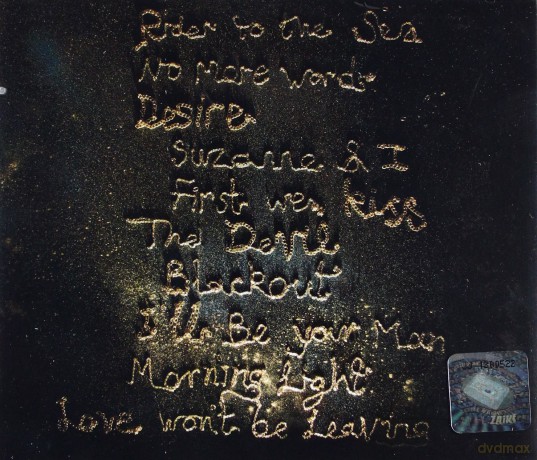 Rider to the Sea
No More Words
Desire
Suzanne & I
First we kiss
The Devil
Blackout
I'll Be your Man
Morning Light
Love won't be Leaving
4280522
ZAIKS
dvdmax